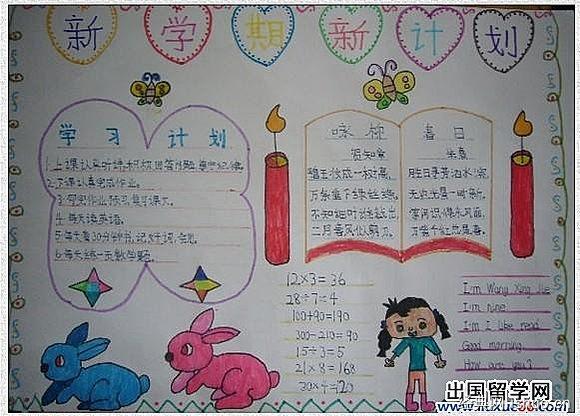 新学期新计划
学习计划
1.上课认真听讲,积极回答问题,遵守纪律。
2.下课认真完成作业。
作业,预习、复习课文。
4.每天读英语。
5.每天看30分钟书,记好词、好句。
6.每天练一页数学题。
咏柳
贺知章
碧玉妆成一树高,
万条垂下绿丝绦。
不知细叶谁裁出,
二月春风似剪刀。
春日
朱熹
胜日寻芳泗水滨,
无边光景一时新。
等闲识得东风面,
万紫千红总是春。
12×3=36
28÷7=4
100+90=190
300-210=90
15÷3=5
21×8=168
30×4=120
I'm Wang Xing Jie
I'm nine
I'm I like read
Good morning
How are you?
出国留学网